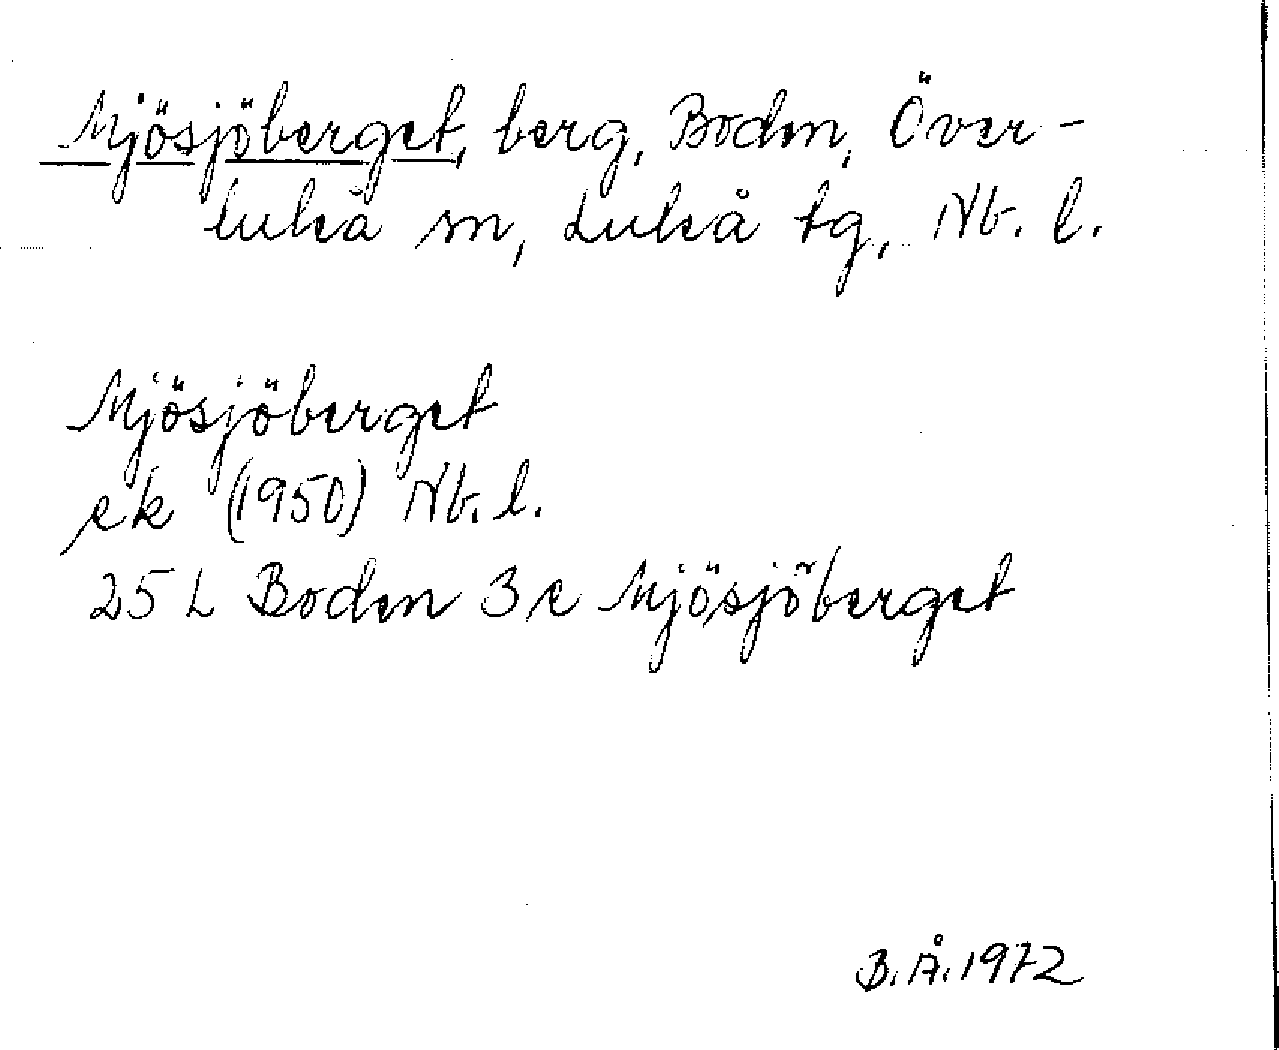 Mjösjöberget, berg, Boden, Över-
luleå sn, Luleå tg, Nb. l.
Mjösjöberget
ek (1950) Nb. l.
25 L Boden 3 e Mjösjöberget
B. Å. 1972